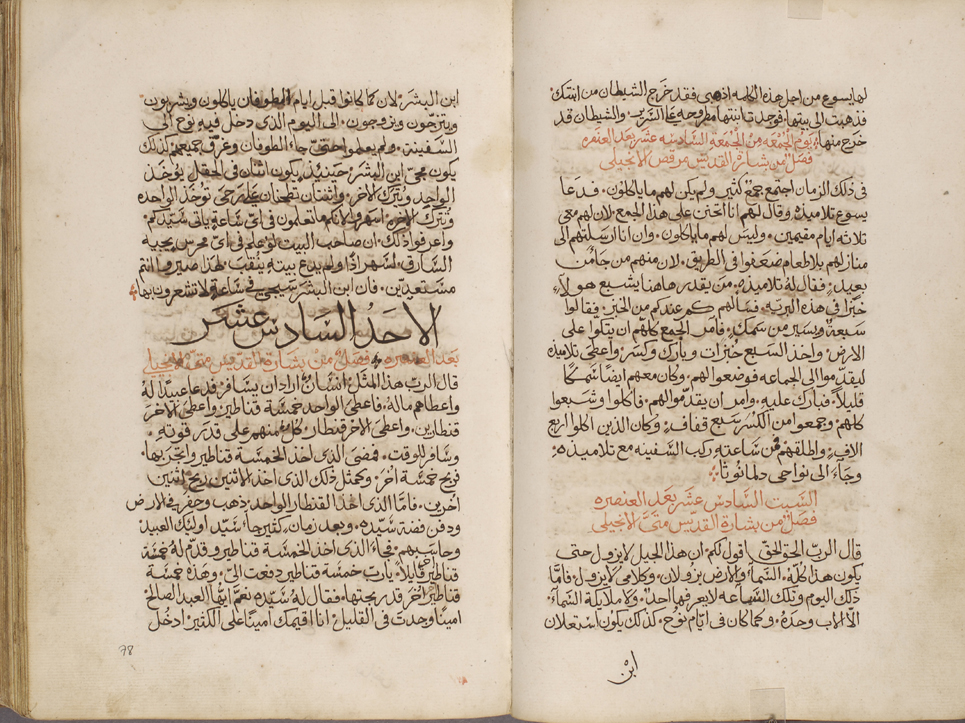 لها يسوع من اجل هذه الكلمه اذهبى فقد خرج الشيطان من ابنتك
فذهبت الى بيتها فوجدت ابنتها مطروحه على السرير والشيطان قد
خرج منها يوم الجمعه من الجمعه السادسه عشر بعد العنصره
فصل من بشارة القديس مرقص الانجيلى
فى ذلك الزمان اجتمع جمع كثير ولم يكن لهم ما ياكلون فدعا
يسوع تلاميذه وقال لهم انا اتحنن على هذا الجمع لان لهم معى
ثلاثه ايام مقيمين وليس لهم ما ياكلون وان انا ارسلتهم الى
منازلهم بلا طعام ضعفوا فى الطريق لان منهم من جا من
بعيد فقال له تلاميذه من يقدر هاهنا يشبع هولاء
خبزا فى هذه البريه فسالهم كم عندكم من الخبز فقالوا
سبعة ويسير من سمك فامر الجمع كلهم ان يتكوا على
الارض واخذ السبع خبزات وبارك وكسر واعطى تلاميذه
ليقدموا الى الجماعه فوضعوا لهم وكان معهم ايضا سمكا
قليلا فبارك عليه وامر ان يقدموا لهم فاكلوا وشبعوا
كلهم وجمعوا من الكسر سبع قفاف وكان الذين اكلوا اربع
الاف واطلقهم فمن ساعته ركب السفينه مع تلاميذه
وجاء الى نواحى دلمانوثا
السبت السادس عشر بعد العنصره
فصل من بشارة القديس متى الانجيلى
قال الرب الحق الحق اقول لكم ان هذا الجيل لا يزول حتى
يكون هذا كله السماء والارض يزولان وكلامى لا يزول فاما
ذلك اليوم وتلك الساعه لا يعرفها احد ولا ملايكة السماء
الا الاب وحده وكما كان فى ايام نوح كذلك يكون استعلان
ابن
ابن البشر لان كما كانوا قبل ايام الطوفان ياكلون ويشربون
ويتزوجون ويزوجون الى اليوم الذى دخل فيه نوح الى
السفينة ولم يعلموا حتى جاء الطوفان وغرق جميعهم كذلك
يكون مجى ابن البشر حينئذ يكون اثنان فى الحقل يوخذ
الواحد ويترك الاخر واثنتان تطحنان على رحى توخذ الواحده
وتترك الاخره اسهروا لانكم ما تعلمون فى اى ساعة ياتى سيدكم
واعرفوا ذلك ان صاحب البيت لو علم فى اى محرس يجى به
السارق لسهر اذا ولم يدع بيته ينقب لهذا صيروا انتم
مستعدين فان ابن البشر سيجى فى ساعة لا تشعرون بها
الاحد السادس عشر
بعد العنصره فصل من بشارة القديس متى الانجيلى
قال الرب هذا المثل انسان اراد ان يسافر فدعا عبيدا له
واعطاهم ماله فاعطى الواحد خمسة قناطير واعطى الاخر
قنطارين واعطى الاخر قنطار كل منهم على قدر قوته
وسافر للوقت فمضى الذى اخذ الخمسة قناطير واتجر بها
فربح خمسة اخر وكمثل ذلك الذى اخذ الاثنين ربح اثنين
اخرين فاما الذى اخذ القنطار الواحد ذهب وحفر فى الارض
ودفن فضة سيده وبعد زمان كثير جاء سيد اوليك العبيد
وحاسبهم فجاء الذى اخذ الخمسة قناطير وقدم له خمسة
قناطير اخر قايلا يا رب خمسة قناطير دفعت الى وهذه خمسة
قناطير اخر قد ربحتها فقال له سيده نعم ايها العبد الصالح
امينا وجدت فى القليل انا اقيمك امينا على الكثير ادخل
78